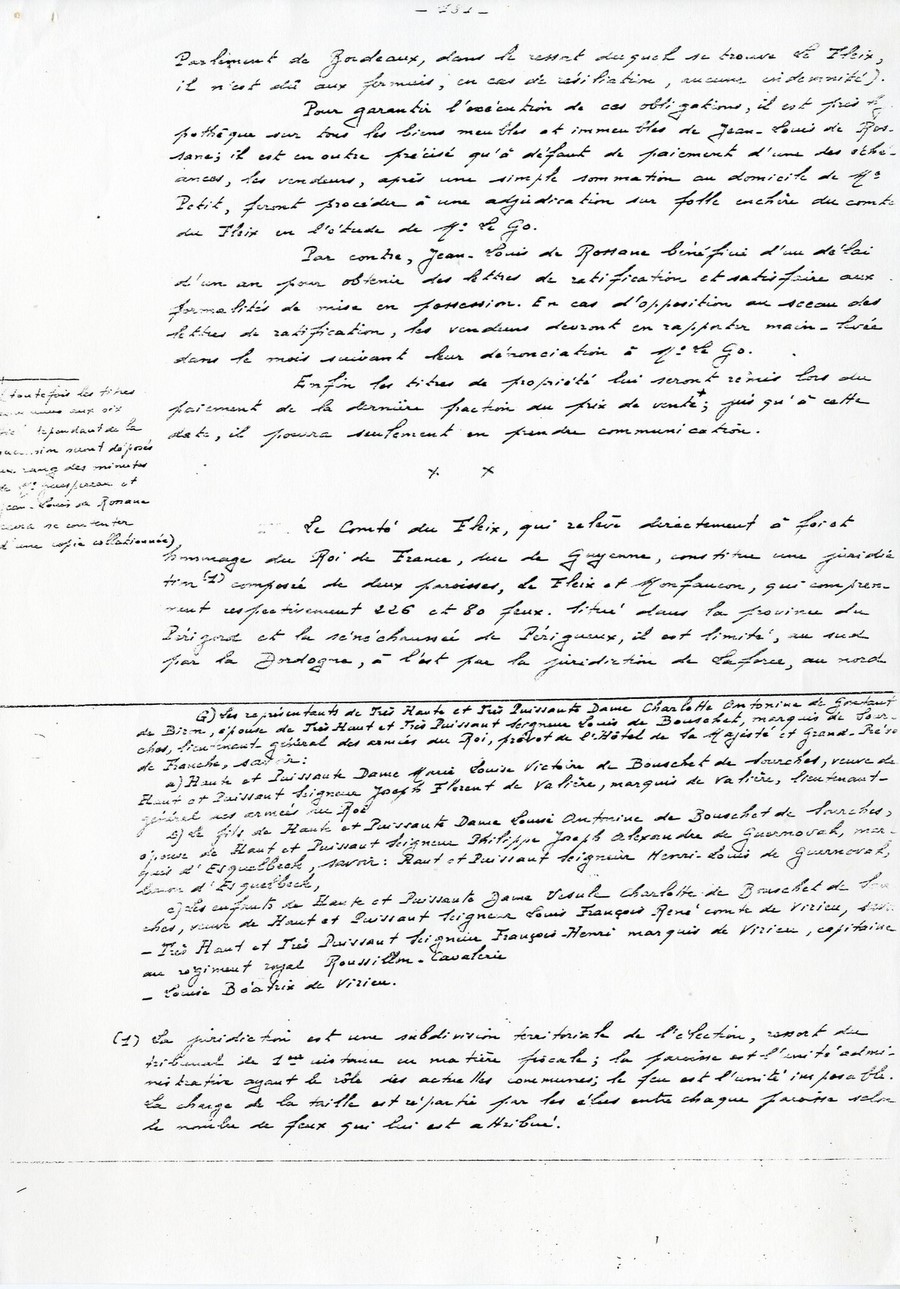 - 131 -
Parlement de Bordeaux, dans le ressort duquel se trouve Le Fleix,
il n'est dû aux fermiers, en cas de résiliation, aucune indemnité).
Pour garantir l'exécution de ces obligations, il est pris hy-
pothèque sur tous les biens meubles et immeubles de Jean-Louis de Ros-
sane; il est en outre précisé qu'à défaut de paiement d'une des éché-
ances, les vendeurs, après une simple sommation au domicile de Me
Petit, feront procéder à une adjudication sur folle enchère du comté
du Fleix en l'étude de Me Le Go.
Par contre, Jean-Louis de Rossane bénéficie d'un délai
d'un an pour obtenir des lettres de ratification et satisfaire aux
formalités de mise en possession. En cas d'opposition au sceau des
lettres de ratification, les vendeurs devront en rapporter main-levée
dans le mois suivant leur dénonciation à Me Le Go.
Enfin les titres de propriété lui seront remis lors du
paiement de la dernière fraction du prix de vente+; jusqu'à cette
date, il pourra seulement en prendre communication.
(toutefois les titres
communs aux
dépendant de la
succession seront déposés
au rang des minutes
de Me et
Jean-Louis de Rossane
devra se contenter
d'une copie collationnée)
x x
Le Comté du Fleix, qui relève directement à foi et
hommage du Roi de France, duc de Guyenne, constitue une juridic-
tion (1) composée de deux paroisses, Le Fleix et Monfaucon, qui compren-
nent respectivement 226 et 80 feux. Situé dans la province du
Périgord et la sénéchaussée de Périgueux, il est limité, au sud
par la Dordogne, à l'est par la juridiction de Laforce, au nord
G) Les représentants de Très Haute et Très Puissante Dame Charlotte Antonine de Gontaut
de Biron, épouse de Très Haut et Très Puissant Seigneur Louis de Bouschet, marquis de Sour-
ches, lieutenant général des armées du Roi, prévot de l'Hôtel de Sa Majesté et Grand-Prévo
de France, savoir:
a) Haute et Puissante Dame Marie Louise Victoire de Bouschet de Sourches, veuve de
Haut et Puissant Seigneur Joseph Florent de Valière, marquis de Valière, lieutenant-
général des armées du Roi
b) Le fils de Haute et Puissante Dame Louise Antonine de Bouschet de Sourches,
épouse de Haut et Puissant Seigneur Philippe Joseph Alexandre de Guernoval, mar-
quis d'Esquelbeck, savoir: Haut et Puissant Seigneur Henri-Louis de Guernoval,
baron d'Esquelbeck,
c) Les enfants de Haute et Puissante Dame Ursule Charlotte de Bouschet de Sour
ches, veuve de Haut et Puissant Seigneur Louis François René comte de Virieu, savoir
- Très Haut et Très Puissant Seigneur François-Henri marquis de Virieu, capitaine
au régiment royal Roussillon-Cavalerie
- Louise Béatrix de Virieu.
(1) La juridiction est une subdivision territoriale de l'élection, ressort du
tribunal de 1ère instance en matière fiscale; la paroisse est l'unité admi-
nistrative ayant le rôle des actuelles communes; le feu est l'unité imposable.
La charge de la taille est répartie par les élus entre chaque paroisse selon
le nombre de feux qui lui est attribué.